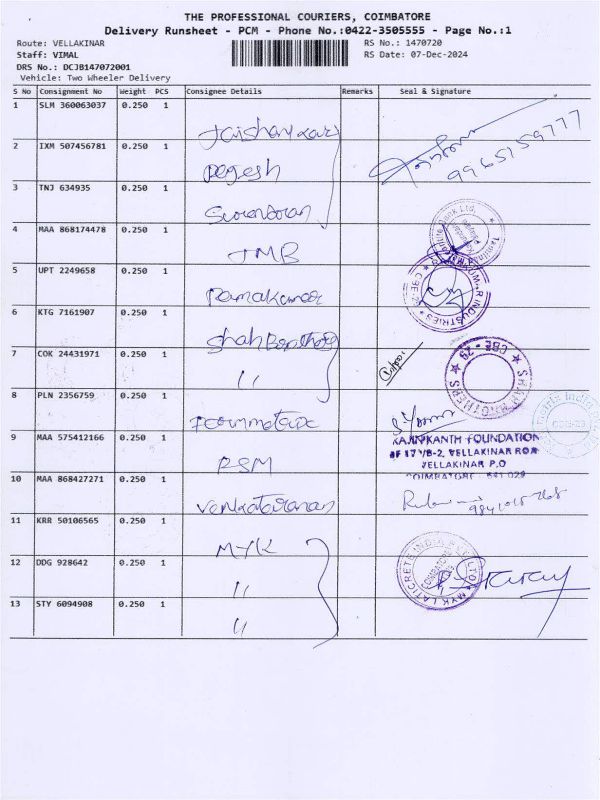 THE PROFESSIONAL COURIERS, COIMBATORE
Delivery Runsheet - PCM - Phone No.:0422-3505555 - Page No.:1
Route: VELLAKINAR
RS No.: 1470720
Staff: VIMAL
RS Date: 07-Dec-2024
DRS No.: DCJB147072001
Vehicle: Two Wheeler Delivery
S No Consignment No Weight PCS Consignee Details Remarks Seal & Signature
1 SLM 360063037 0.250 1
2 IXM 507456781 0.250 1
3 TNJ 634935 0.250 1
4 MAA 868174478 0.250 1 TMB
5 UPT 2249658 0.250 1
6 KTG 7161907 0.250 1
7 COK 24431971 0.250 1 "
8 PLN 2356759 0.250 1
9 MAA 575412166 0.250 1 RSM
10 MAA 868427271 0.250 1
11 KRR 50106565 0.250 1 MYK
12 DDG 928642 0.250 1 "
13 STY 6094908 0.250 1 "
CBE - 29
SHAH BROTHERS
RAJNIKANTH FOUNDATION
VELLAKINAR P.O
MYK LATICRETE INDIA
COIMBATORE